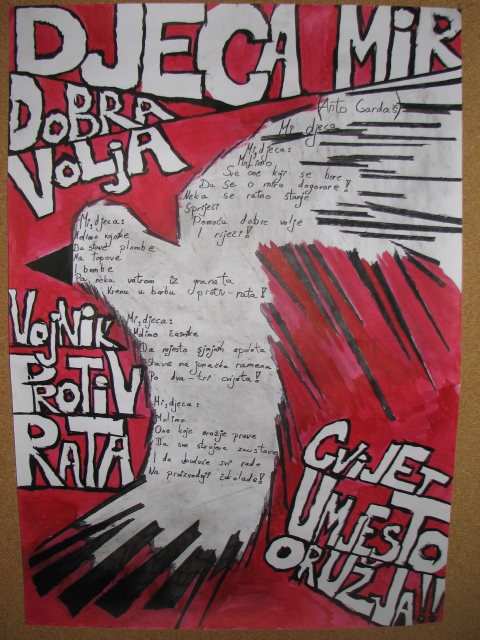 DJECA MiR
DOBRA
VOLJA
(Anto Gardaš)
Mi djeca
Mi, djeca:
Molimo
Sve one koji se bore
Da se o miru dogovore!
Neka se ratno stanje
Spriječi
Pomoću dobre volje
I riječi!
Mi, djeca:
Molimo vojnike
Da stave plombe
Na topove
I bombe
Pa neka vatrom iz granata
Krenu u borbu protiv-rata!
Mi, djeca:
Molimo časnike
Da mjesto sjajnih epoleta
stave na junačka ramena
Po dva-tri cvijeta!
Mi, djeca:
Molimo
One koje oružje prave
Da sve strojeve zaustave
I da ubuduće svi rade
Na proizvodnji čokolade!
VOJNIK
PROTIV
RATA
CVIJET
UMJESTO
ORUŽJA!!